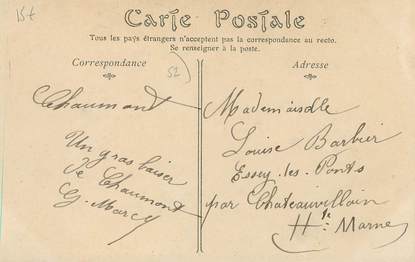 15t
Carte Postale
Tous les pays étrangers n'acceptent pas la correspondance au recto.
Se renseigner à la poste.
Correspondance
52
Adresse
Chaumont
Un gros baiser
de Chaumont
G. Marcy
Mademoiselle
Louise Barbier
Essey-les-Ponts
par Chateauvillain
Hte Marne